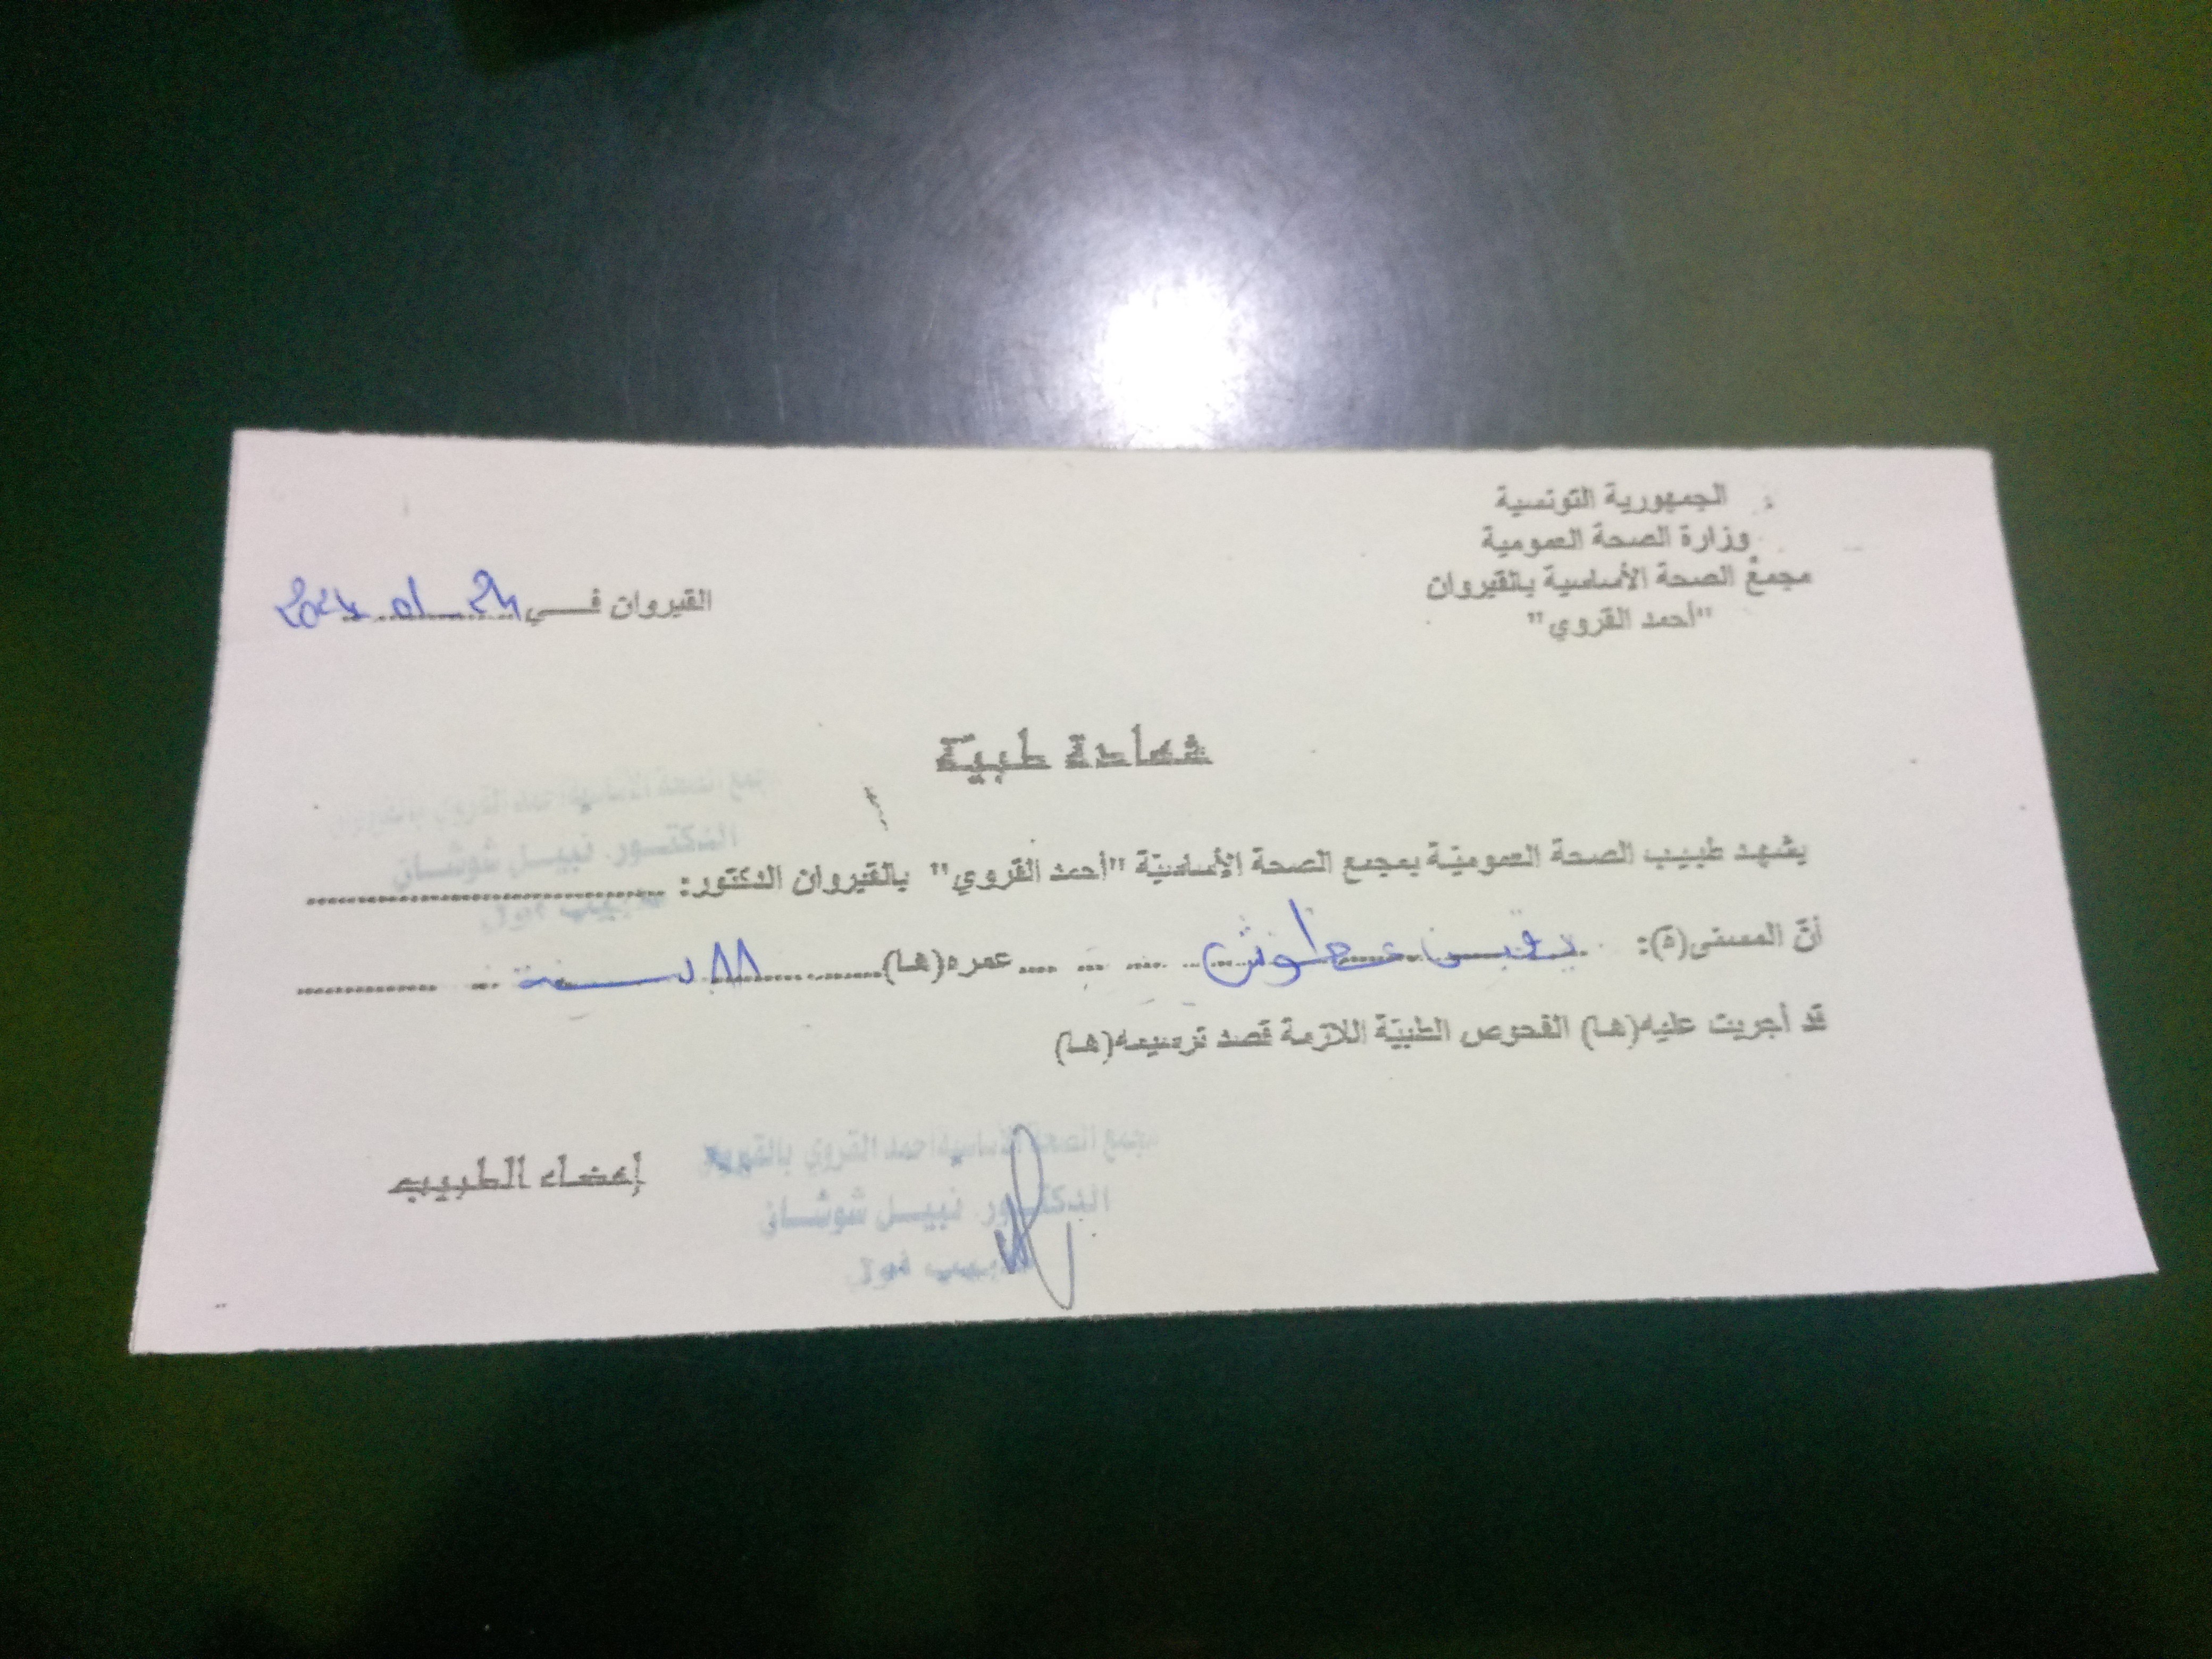 الجمهورية التونسية
وزارة الصحة العمومية
مجمع الصحة الأساسية بالقيروان
"أحمد القروي"
القيروان في
شهادة طبية
مجمع الصحة الأساسية احمد القروي بالقيروان
الدكتور نبيل شوشان
يشهد طبيب الصحة العمومية بمجمع الصحة الأساسية "أحمد القروي" بالقيروان الدكتور:
أن المسمى(ة): عمره(ها) سنة
قد أجريت عليه(ها) الفحوص الطبية اللازمة قصد ترسيمه(ها)
إمضاء الطبيب
مجمع الصحة الأساسية احمد القروي بالقيروان
الدكتور نبيل شوشان